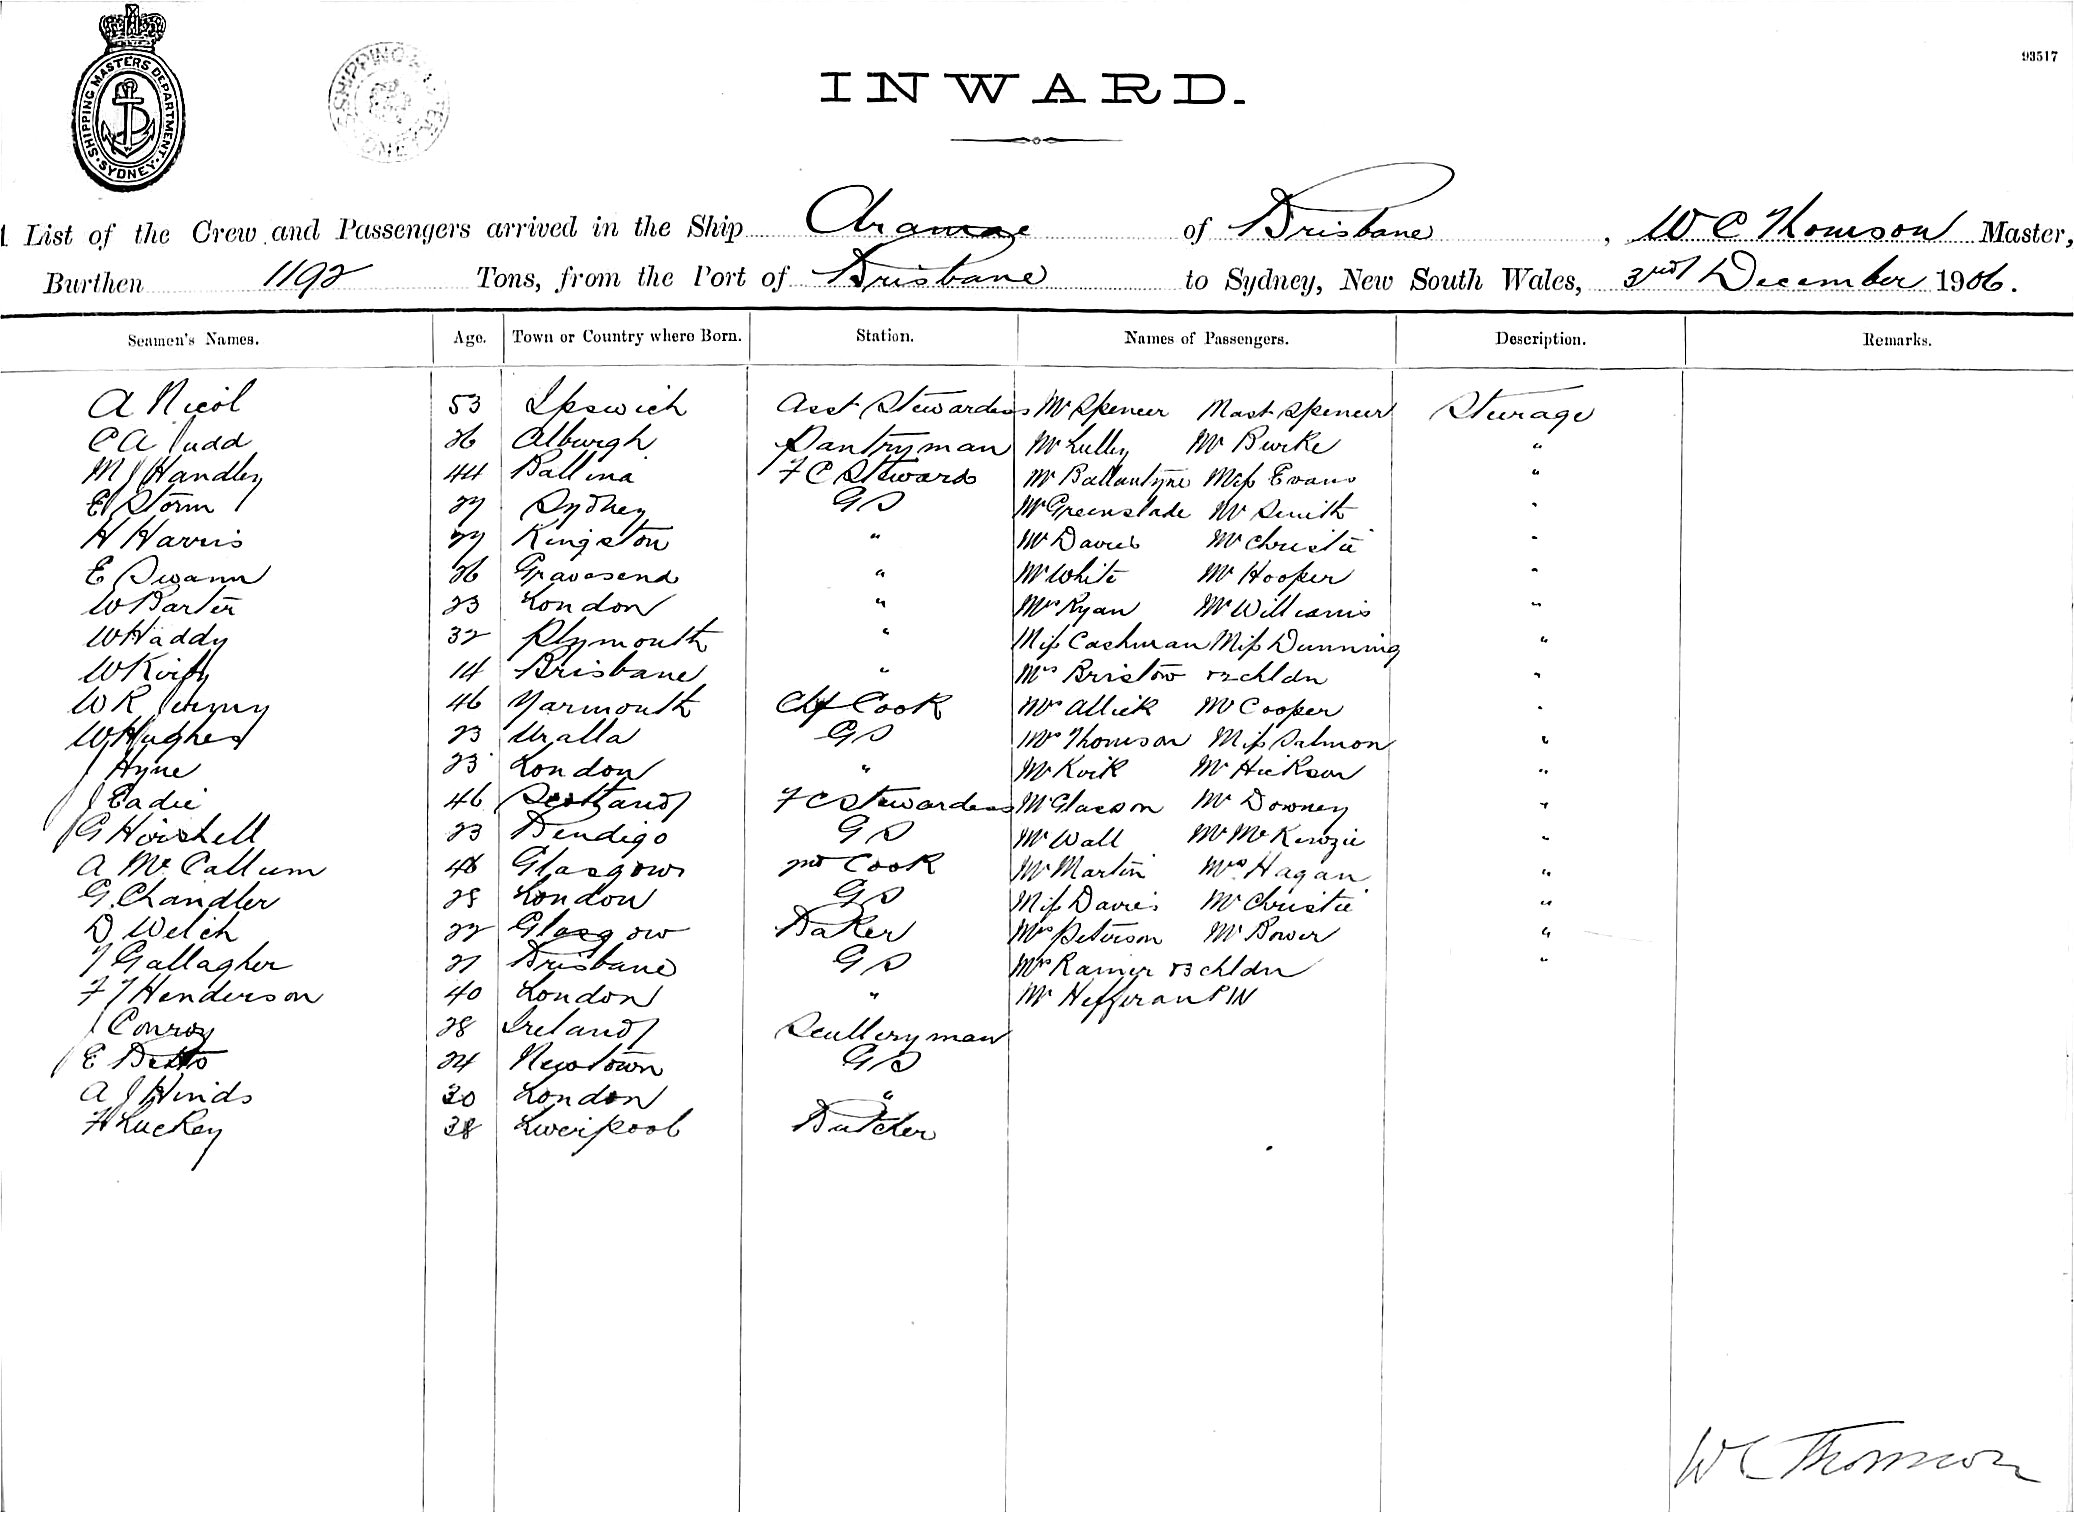 SHIPPING MASTERS DEPARTMENT. SYDNEY.
93517
INWARD.
List of the Crew and Passengers arrived in the Ship Aramac of Brisbane, W C Thomson Master,
Burthen 1192 Tons, from the Port of Brisbane to Sydney, New South Wales, 3rd December 1906.
Seamen's Names. Age. Town or Country where Born. Station. Names of Passengers. Description. Remarks.
A Nicol 53 Ipswich Asst Stewardess Mr Spencer Mast Spencer Steerage
C A Judd 26 Alburgh Pantryman Mr Lulley Mr Burke "
M J Handley 44 Ballina F C Steward Mr Ballantyne Miss Evans "
E Storm 27 Sydney G S Mr Greenslade Mr Smith "
H Harris 27 Kingston " Mr Davies Mr Christie "
E Swann 26 Gravesend " Mr White Mr Hooper "
W Barter 23 London " Mrs Ryan Mr Williams "
W Haddy 32 Plymouth " Miss Cashman Miss Dunning "
W Kirby 14 Brisbane " Mrs Bristow & 2 chldn "
W R 46 Yarmouth Chf Cook Mr Allick Mr Cooper "
W Hughes 23 Uralla G S Mrs Thomson Miss Salmon "
J Hyne 23 London " Mr Kvik Mr Hickson "
J Eadie 46 Scotland F C Stewardess Mr Glasson Mr Downey "
G Hirshell 23 Bendigo G S Mr Wall Mr McKenzie "
A McCallum 48 Glasgow 2nd Cook Mr Martin Mrs Hagan "
G. Chandler 28 London G S Miss Davies Mr Christie "
D Welch 22 Glasgow Baker Mrs Peterson Mr Bower "
T Gallagher 21 Brisbane G S Mrs Ramer & 3 chldn "
F J Henderson 40 London " Mr Hefferan P IN
J Conroy 28 Ireland Sculleryman
E 24 Newtown G S
A J Hinds 30 London "
H Luckey 38 Liverpool Butcher
W C Thomson